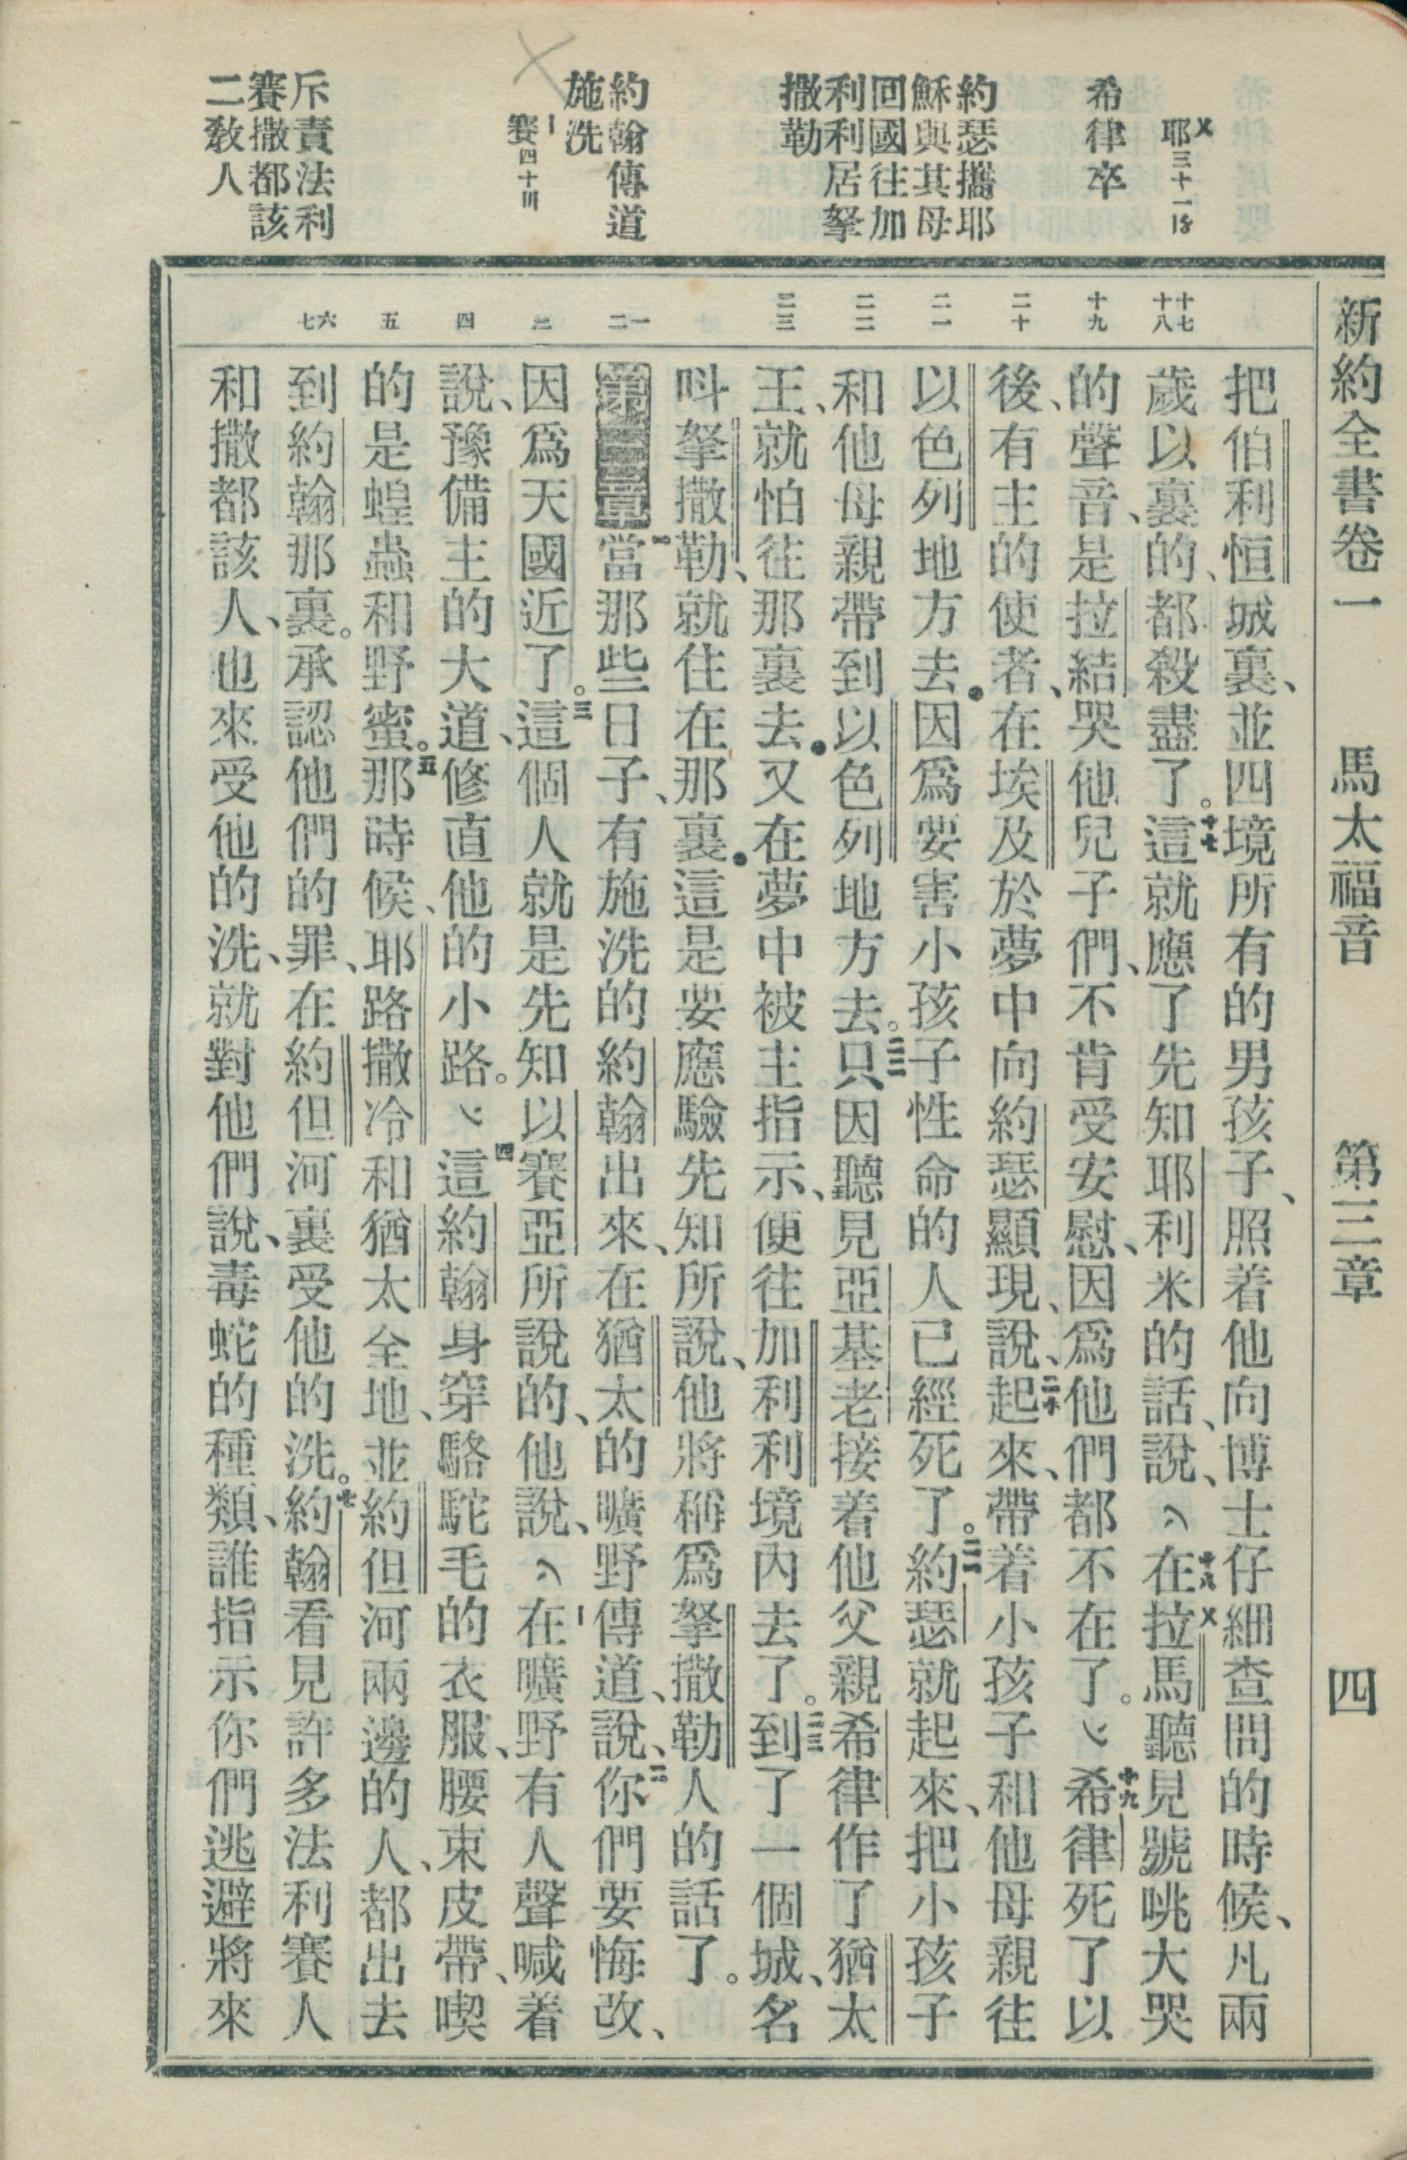 新約全書卷一 馬太福音 第三章 四
耶三十一15
希律卒
約瑟攜耶
穌與其母
回國往加
利利居拏
撒勒
約翰傳道
施洗
賽四十3
斥責法利
賽撒都該
二教人
十七
十八
十九
二十
二一
二二
二三
一
二
三
四
五
六
七
把伯利恒城裏、並四境所有的男孩子、照着他向博士仔細查問的時候、凡兩
歲以裏的、都殺盡了。十七這就應了先知耶利米的話、說、十八在拉馬聽見號咷大哭
的聲音、是拉結哭他兒子們、不肯受安慰、因爲他們都不在了。十九希律死了以
後、有主的使者、在埃及於夢中向約瑟顯現、說、二十起來、帶着小孩子和他母親往
以色列地方去●因爲要害小孩子性命的人已經死了。二一約瑟就起來、把小孩子
和他母親帶到以色列地方去。二二只因聽見亞基老接着他父親希律作了猶太
王、就怕往那裏去●又在夢中被主指示、便往加利利境內去了。二三到了一個城、名
呌拏撒勒、就住在那裏●這是要應驗先知所說、他將稱爲拏撒勒人的話了。
第三章 一當那些日子、有施洗的約翰出來、在猶太的曠野傳道、說、二你們要悔改、
因爲天國近了。三這個人就是先知以賽亞所說的、他說、在曠野有人聲喊着
說、豫備主的大道、修直他的小路。四這約翰身穿駱駝毛的衣服、腰束皮帶、喫
的是蝗蟲和野蜜。五那時候、耶路撒冷和猶太全地、並約但河兩邊的人、都出去
到約翰那裏。承認他們的罪、在約但河裏受他的洗。七約翰看見許多法利賽人
和撒都該人、也來受他的洗、就對他們說、毒蛇的種類、誰指示你們逃避將來